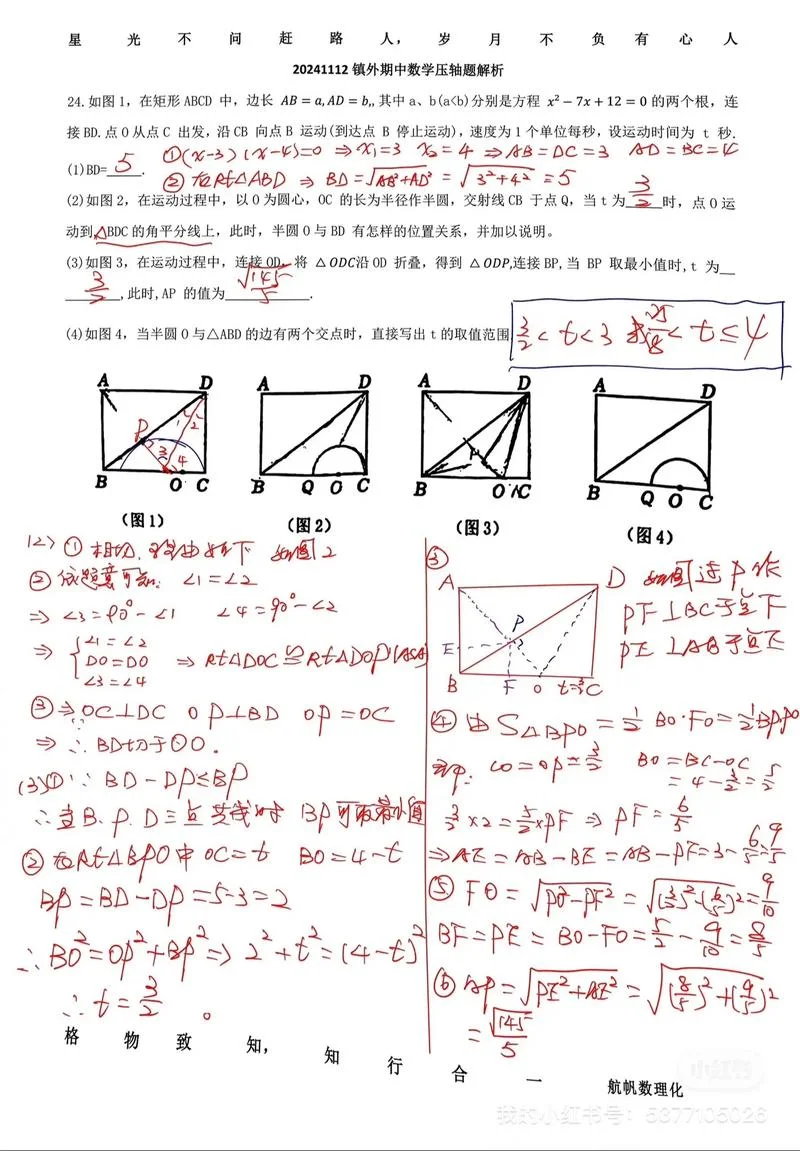 星 光 不 问 赶 路 人， 岁 月 不 负 有 心 人
20241112 镇外期中数学压轴题解析
24.如图 1，在矩形 ABCD 中，边长 AB = a, AD = b,,其中 a、b(a<b)分别是方程 x²－7x＋12＝0 的两个根，连
接 BD.点 O 从点 C 出发，沿 CB 向点 B 运动(到达点 B 停止运动)，速度为 1 个单位每秒，设运动时间为 t 秒.
①(x-3)(x-4)=0 ⇒ x₁=3 x₂=4 ⇒ AB=DC=3 AD=BC=4
(1)BD= 5 .
②在Rt△ABD ⇒ BD=√AB²+AD² = √3²+4² = 5
(2)如图 2，在运动过程中，以 O 为圆心，OC 的长为半径作半圆，交射线 CB 于点 Q，当 t 为 3/2 时，点 O 运
动到△BDC 的角平分线上，此时，半圆 O 与 BD 有怎样的位置关系，并加以说明。
(3)如图 3，在运动过程中，连接 OD，将 △ODC沿 OD 折叠，得到 △ODP,连接 BP,当 BP 取最小值时,t 为
3/2 ,此时,AP 的值为 √145/5 .
(4)如图 4，当半圆 O 与△ABD 的边有两个交点时，直接写出 t 的取值范围 3/2 < t < 3 或 25/8 < t ≤ 4
A D
P 1 2
3 4
B O C
(图 1)
A D
B Q O C
(图 2)
A D
P
B O C
(图 3)
A D
B Q O C
(图 4)
(2) ① 相切. 理由如下 如图2
② 依题意可知: ∠1=∠2
⇒ ∠3=90°-∠1 ∠4=90°-∠2
⇒ { ∠1=∠2
DO=DO
∠3=∠4
⇒ Rt△DOC≌Rt△DOP(ASA)
③ ⇒ OC⊥DC OP⊥BD OP=OC
⇒ ∴ BD切于⊙O.
(3)① ∵ BD-DP≤BP
∴ 当B.P.D三点共线时 BP可取最小值
② 在Rt△BPO中 OC=t BO=4-t
BP=BD-DP=5-3=2
∴ BO²=OP²+BP² ⇒ 2²+t²=(4-t)²
∴ t=3/2 。
③
A D
P
E
B F O t=3/2 C
如图过P作
PF⊥BC于点F
PE⊥AB于点E
④ 由 S△BPO = 1/2 BO·FO = 1/2 BP·PO
CO=OP=3/2 BO=BC-OC
=4-3/2=5/2
3/2×2=5/2×PF ⇒ PF=6/5
⇒ AE=AB-BE=AB-PF=3-6/5=9/5
⑤ FO=√PO²-PF² = √(3/2)²-(6/5)² = 9/10
BF=PE=BO-FO=5/2-9/10=8/5
⑥ AP=√PE²+AE² = √(8/5)²+(9/5)²
= √145/5
格 物 致 知， 知 行 合 一
航帆数理化
小红书
我的小红书号：5377105026